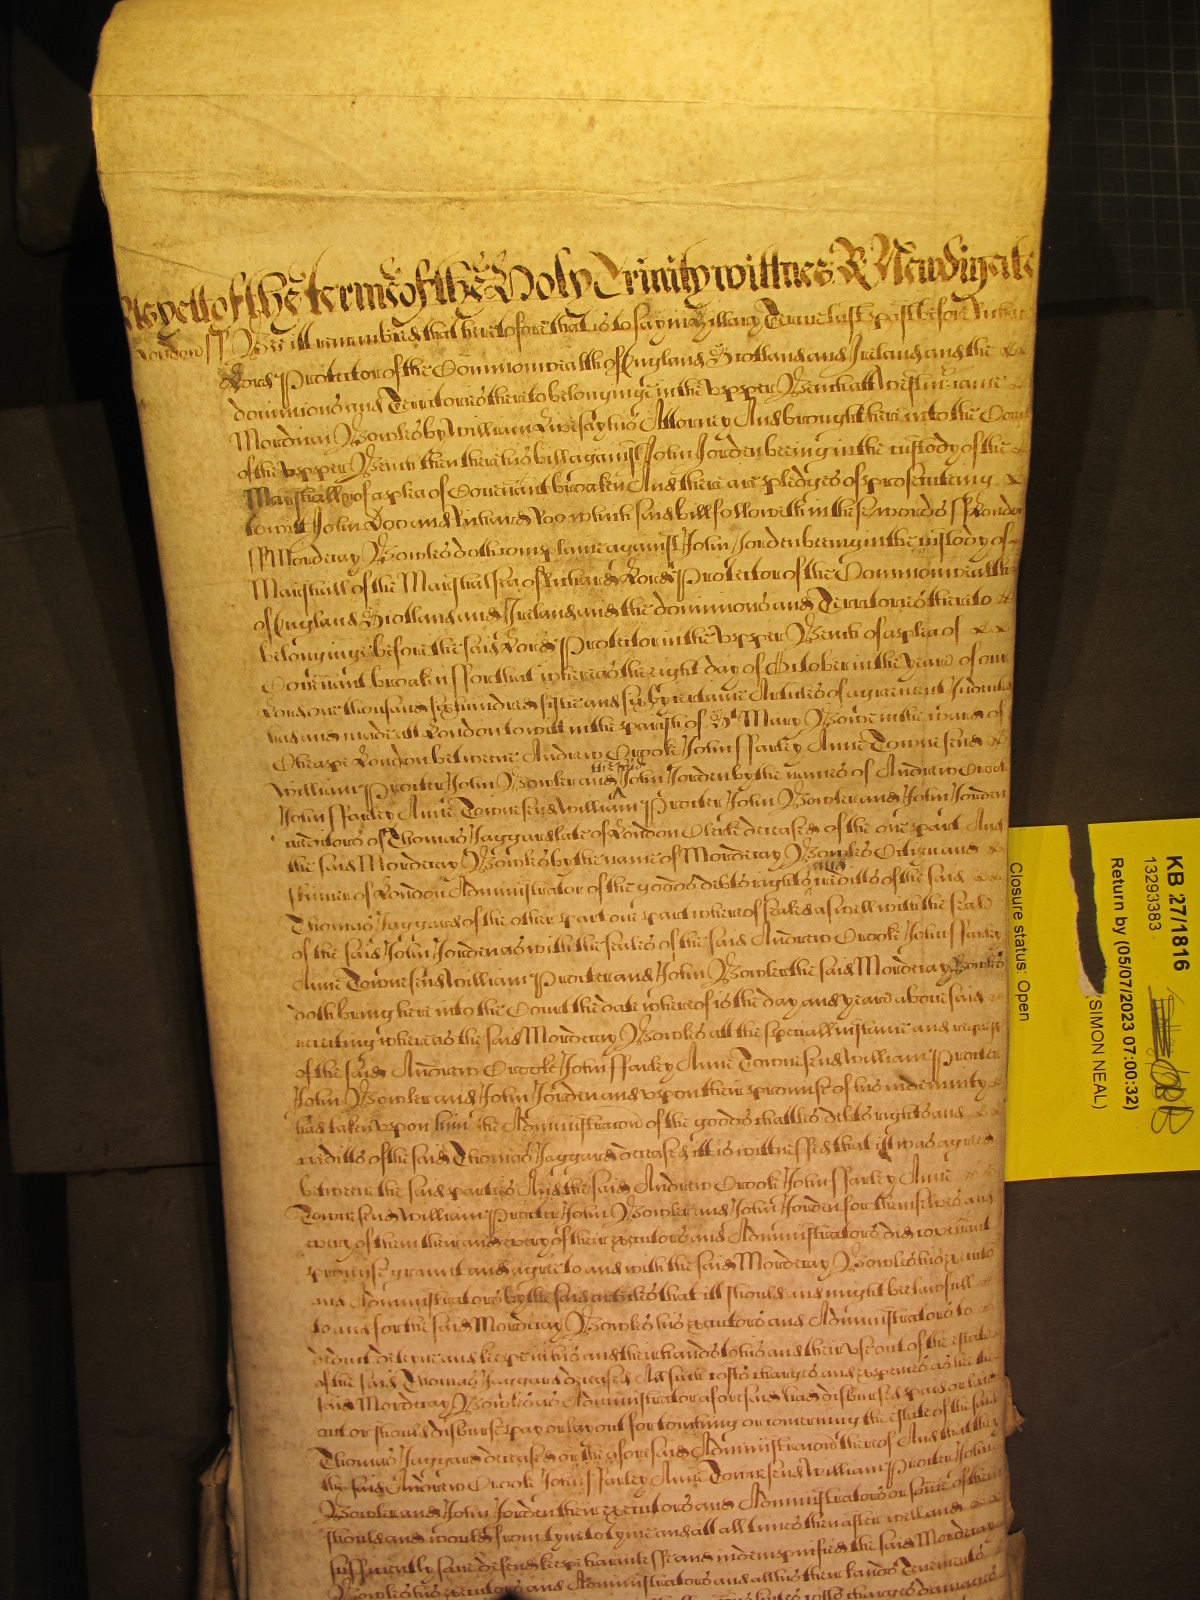 As yett of the terme of the Holy Trinity wittnes R Newdigate
London ss Bee itt remembred that heretofore that is to say in Hillary Terme last past before Richard
Lord Protector of the Commonwealth of England Scotland and Ireland and the
dominions and Territories thereto belonginge in the vpper Bench att Westm came
Mordecay Bowles by William Livesay his Attorney And brought here into the Court
of the vpper Bench then there his bill against John Jorden beeing in the custody of the
Marshall of a plea of Covenant broaken And there are pledges of prosecuteing
towitt John Doo and Richard Roo which said bill followeth in these words ss London
ss Mordecay Bowles doth complaine against John Jorden beeing in the custody of
Marshall of the Marshalsea of Richard Lord Protector of the Commonwealth
of England Scotland and Ireland and the dominions and Territories thereto
belonginge before the said Lord Protector in the vpper Bench of a plea of
Covenant broaken ffor that whereas the eight day of October in the yeare of our
Lord one thousand six hundred fiftie and six by certaine Articles of agreement Indented
had and made att London to witt in the parish of St Mary Bowe in the ward of
Cheape London betweene Andrew Crooke John ffarley Anne Townesend
William Procter John Bowler and the said John Jorden by the names of Andrew Crooke
John ffarley Anne Townesend William Procter John Bowler and John Jorden
creditors of Thomas Jaggard late of London Clerke deceased of the one part And
the said Mordecay Bowles by the name of Mordecay Bowles Citizen and
Skinner of London Administrator of the goods debts rights and creditts of the said
Thomas Jaggard of the other part one part whereof sealed aswell with the seale
of the said John Jorden as with the seales of the said Andrew Crooke John ffarley
Anne Townesend William Procter and John Bowler the said Mordecay Bowles
doth bring here into the Court the date whereof is the day and yeare abovesaid
reciting whereas the said Mordecay Bowles att the speciall instance and request
of the said Andrew Crooke John ffarley Anne Townesend William Procter
John Bowler and John Jorden and vpon their promise of his indemnity
had taken vpon him the Administracon of the goods chattles debts rights and
creditts of the said Thomas Jaggard deceased itt is wittnessed that itt was agreed
betweene the said parties And the said Andrew Crooke John ffarley Anne
Townesend William Procter John Bowler and John Jorden for themselves and
every of them their and every of their executors and Administrators did covenant
promise graunt and agree to and with the said Mordecay Bowles his executors
and Administrators by the said articles that itt should and might bee lawfull
to and for the said Mordecay Bowles his executors and Administrators to
deduct deteyne and keepe in his and their hands to his and their vse out of the estate
of the said Thomas Jaggard deceased All such costs charges and expences as hee the
said Mordecay Bowles as Administrator aforesaid had disbursed paid or laid
out or should disburse pay or lay out for touching or concerning the estate of the said
Thomas Jaggard deceased or the aforesaid Administracon thereof And that they
the said Andrew Crooke John ffarley Anne Townesend William Procter John
Bowler and John Jorden their executors and Administrators or some of them
should and would from tyme to tyme and att all times then after well and
sufficiently save defend keepe harmelesse and indempnified the said Mordecay
Bowles his executors and Administrators and all his their lands Tenements
charges damages
KB 27/1816
13293383
Return by (05/07/2023 07:00:32)
(SIMON NEAL)
Closure status: Open